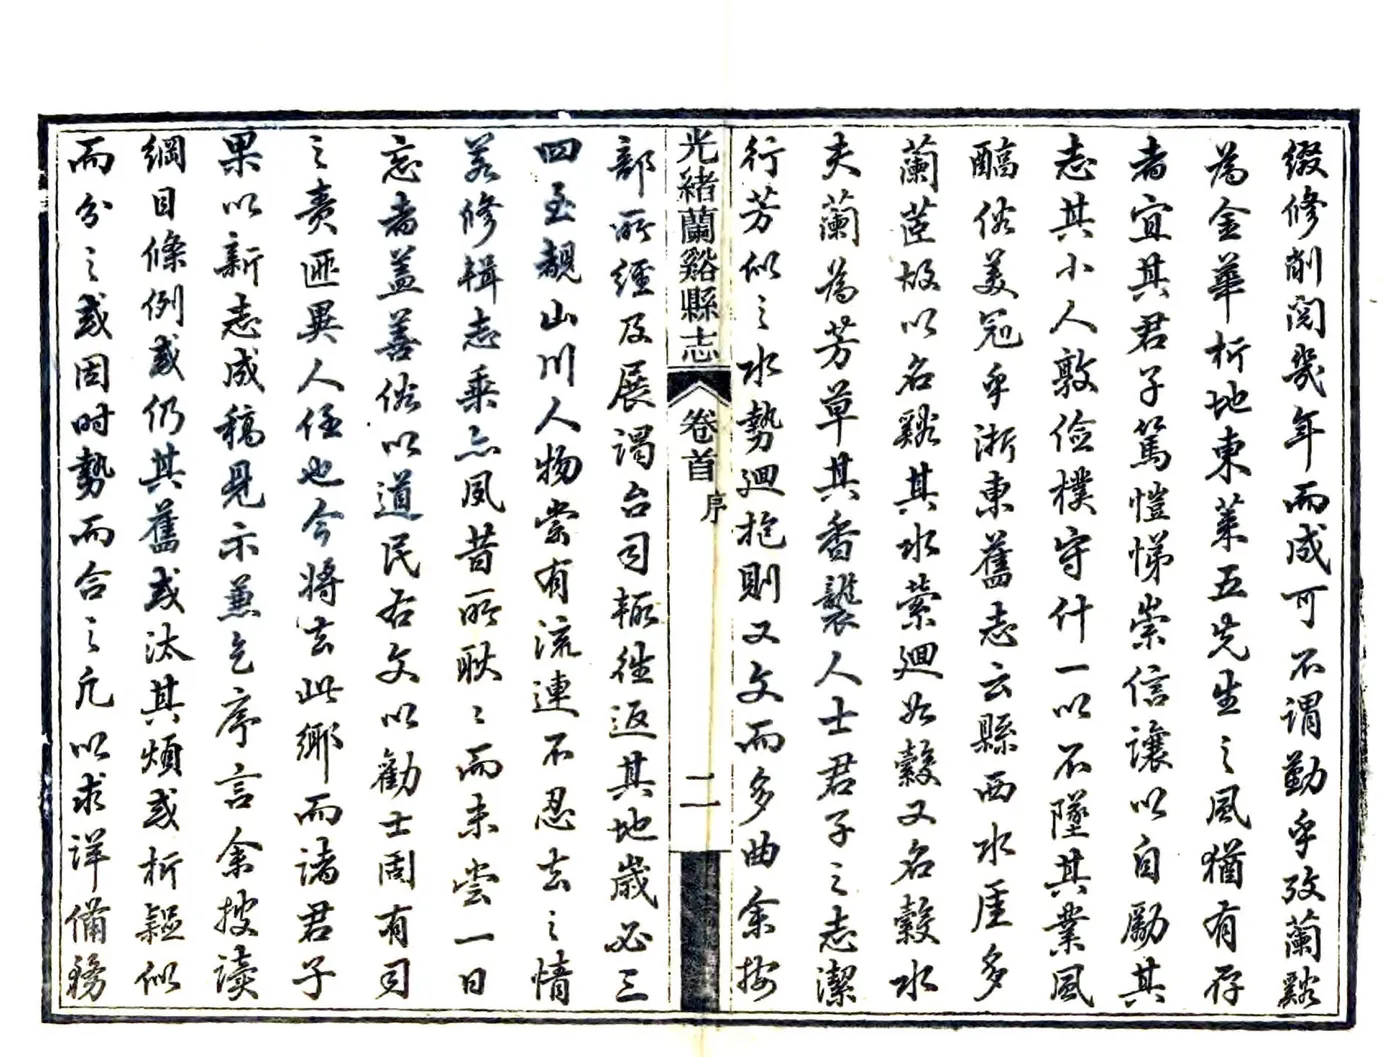 綴修削閱幾年而成可不謂勤乎攷蘭谿
為金華析地東萊五先生之風猶有存
者宜其君子篤愷悌崇信讓以自勵其
志其小人敦儉樸守什一以不墜其業風
醕俗美冠乎浙東舊志云縣西水厓多
蘭茝故以名谿其水縈廻如縠又名縠水
夫蘭為芳草其香襲人士君子之志潔
行芳似之水勢迴抱則又文而多曲余按
光緒蘭谿縣志
卷首
序
二
部所經及展謁台司輒往返其地歲必三
四至覩山川人物嘗有流連不忍去之情
若修輯志乘亦夙昔所耿〻而未嘗一日
忘者蓋善俗以道民右文以勸士固有司
之責匪異人任也今將去此鄉而諸君子
果以新志成稿見示兼乞序言余披讀
綱目條例或仍其舊或汰其煩或析類似
而分之或因時勢而合之凡以求詳備務